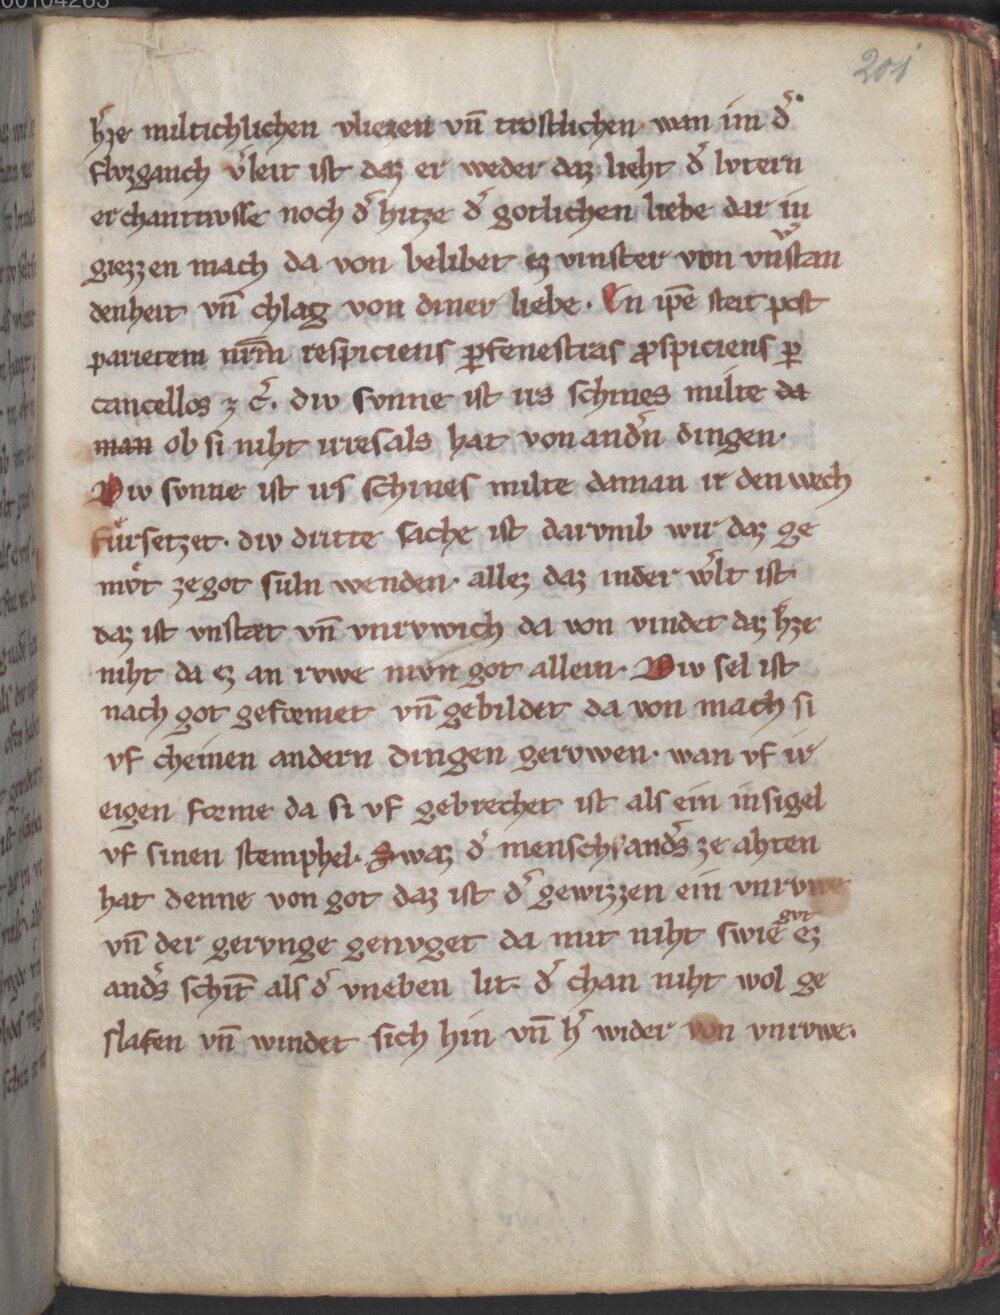 201
h͛ze miltichlichen vliezen vn̄ trostlichen. wan im d͛
flvzganch v͛leit ist daz er weder daz lieht d͛ lvtern
erchantnvsse noch d͛ hitze d͛ gotlichen liebe dar in
giezzen mach da von belibet ez vinster von vnv͛stan
denheit vn̄ chlag von diner liebe. En ip̄e stat post
parietem nr̄m respiciens ꝑfenestras ꝓspiciens ꝑ
cancellos ⁊ c͛. div svnne ist irs schines milte da
man ob si niht irresals hat von and͛n dingen.
Div svnne ist irs schines milte daman ir den wech
fůrsetzet. div dritte sache ist darvmb wir daz ge
mvͦt zegot suln wenden. allez daz inder w͛lt ist
daz ist vnstæt vn̄ vnrvwich da von vindet daz h͛ze
niht da ez an rvwe nivn got allein. Div sel ist
nach got geformet vn̄ gebildet da von mach si
vf cheinen andern dingen gervwen. wan vf ir
eigen forme da si vf gebrechet ist als ein insigel
vf sinen stemphel. Swaz d͛ mensch and͛s ze ahten
hat denne von got daz ist d͛ gewizzen ein vnrvwe
vn̄ der gervnge genvget da mit niht swie gvt ez
and͛s schīt als d͛ vneben lit. d͛ chan niht wol ge
slafen vn̄ windet sich hin vn̄ h͛ wider von vnrvwe.